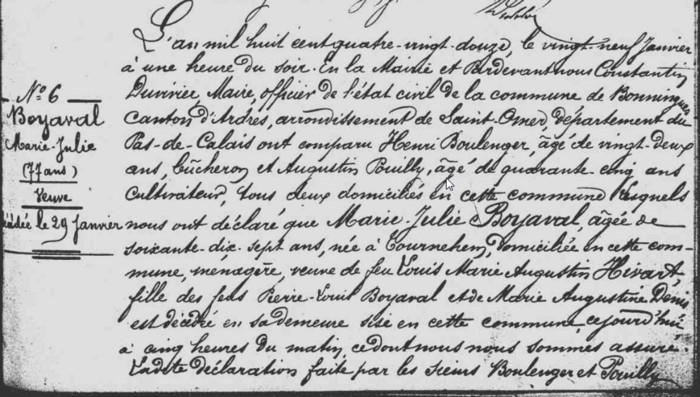 L'an mil huit cent quatre-vingt-douze, le vingt-neuf Janvier
à une heure du soir. En la Mairie et Pardevant nous Constantin
N° 6
Duvivier Maire officier de l'état civil de la commune de Bonningues
Boyaval
Canton d'Ardres, arrondissement de Saint-Omer, département du
Marie-Julie
Pas-de-Calais ont comparu Henri Boulenger, âgé de vingt-deux
(77 ans)
ans, bûcheron et Augustin Pouilly, âgé de quarante-cinq ans
Veuve
Cultivateur, tous deux domiciliés en cette commune lesquels
décédée le 29 Janvier
nous ont déclaré que Marie-Julie Boyaval, âgée de
soixante-dix-sept ans, née à Tournehem, domiciliée en cette com-
mune, ménagère, veuve de feu Louis Marie Augustin Hivart,
fille des feus Pierre-Louis Boyaval et de Marie Augustine Denis
est décédée en sa demeure sise en cette commune, cejourd'hui
à cinq heures du matin, ce dont nous nous sommes assuré.
Ladite déclaration faite par les sieurs Boulenger et Pouilly